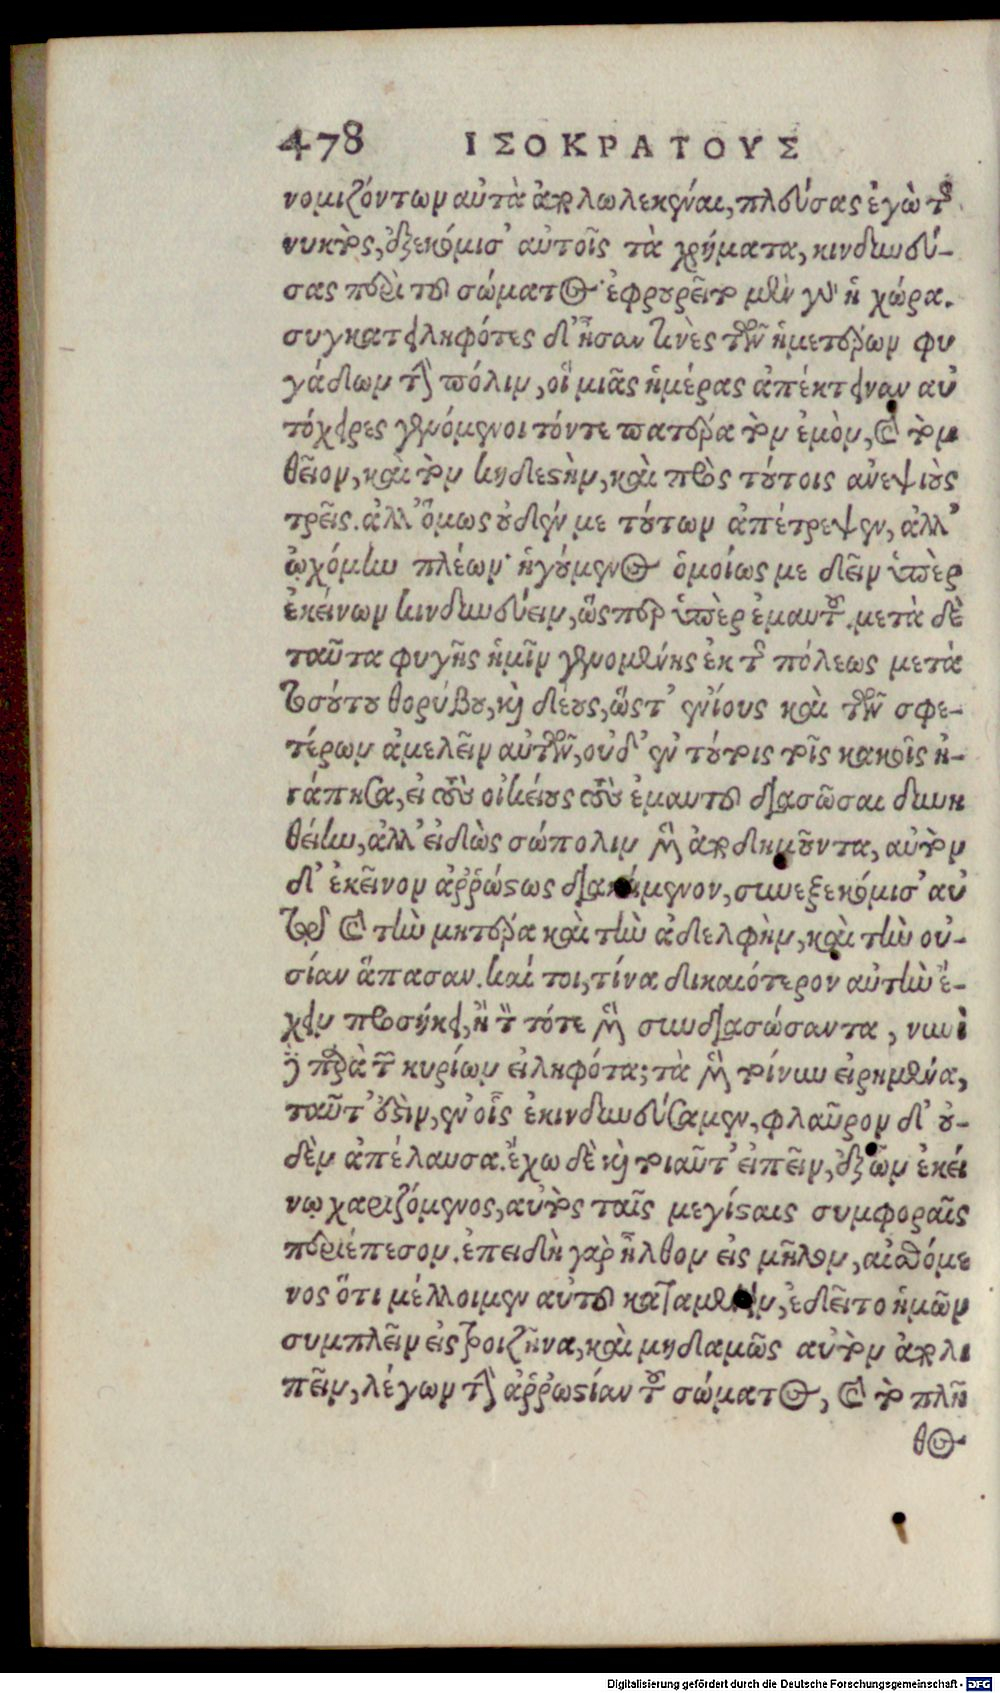 478 ΙΣΟΚΡΑΤΟΥΣ
νομιζόντων αὐτὰ ἀπολωλεκέναι, πλεύσας ἐγὼ τῆς
νυκτὸς, ἐξεκόμισ' αὐτοῖς τὰ χρήματα, κινδυνεύ-
σας περὶ τοῦ σώματος· ἐφρουρεῖτο μὲν γὰρ ἡ χώρα.
συγκατειληφότες δ' ἦσαν τινὲς τῶν ἡμετέρων φυ
γάδων τὴν πόλιν, οἳ μιᾶς ἡμέρας ἀπέκτειναν αὐ
τόχειρες γενόμενοι τόντε πατέρα τὸν ἐμὸν, καὶ τὸν
θεῖον, καὶ τὸν κηδεστὴν, καὶ πρὸς τούτοις ἀνεψιοὺς
τρεῖς. ἀλλ' ὅμως οὐδέν με τούτων ἀπέτρεψεν, ἀλλ'
ᾠχόμην πλέων· ἡγούμενος ὁμοίως με δεῖν ὑπὲρ
ἐκείνων κινδυνεύειν, ὥσπερ ὑπὲρ ἐμαυτοῦ. μετὰ δὲ
ταῦτα φυγῆς ἡμῖν γενομένης ἐκ τῆς πόλεως μετὰ
τοσούτου θορύβου, καὶ δέους, ὥστ' ἐνίους καὶ τῶν σφε-
τέρων ἀμελεῖν αὐτῶν, οὐδ' ἐν τούτοις τοῖς κακοῖς ἠ-
γάπησα, εἰ τοὺς οἰκείους τοὺς ἐμαυτοῦ διασῶσαι δυνη
θείην, ἀλλ' εἰδὼς σώπολιν μὲν ἀποδημοῦντα, αὐτὸν
δ' ἐκεῖνον ἀῤῥώστως διακείμενον, συνεξεκόμισ' αὐ
τῷ καὶ τὴν μητέρα καὶ τὴν ἀδελφὴν, καὶ τὴν οὐ-
σίαν ἅπασαν. καί τοι, τίνα δικαιότερον αὐτὴν ἔ-
χειν προσήκει, ἢ τὸν τότε μὲν συνδιασώσαντα, νυνὶ
δὲ παρὰ τῶν κυρίων εἰληφότα; τὰ μὲν τοίνυν εἰρημένα,
ταῦτ' ἔστιν, ἐν οἷς ἐκινδύνευσα μὲν, φλαῦρον δ' οὐ-
δὲν ἀπέλαυσα. ἔχω δὲ καὶ τοιαῦτ' εἰπεῖν, ἐξ ὧν ἐκεί
νῳ χαριζόμενος, αὐτὸς ταῖς μεγίσταις συμφοραῖς
περιέπεσον. ἐπειδὴ γὰρ ἦλθον εἰς μῆλον, αἰσθόμε
νος ὅτι μέλλοιμεν αὐτοῦ καταμένειν, ἐδεῖτο ἡμῶν
συμπλεῖν εἰς τροιζῆνα, καὶ μηδαμῶς αὐτὸν ἀπολι
πεῖν, λέγων τὴν ἀῤῥωστίαν τοῦ σώματος, καὶ τὸ πλῆ
θος
Digitalisierung gefördert durch die Deutsche Forschungsgemeinschaft - DFG